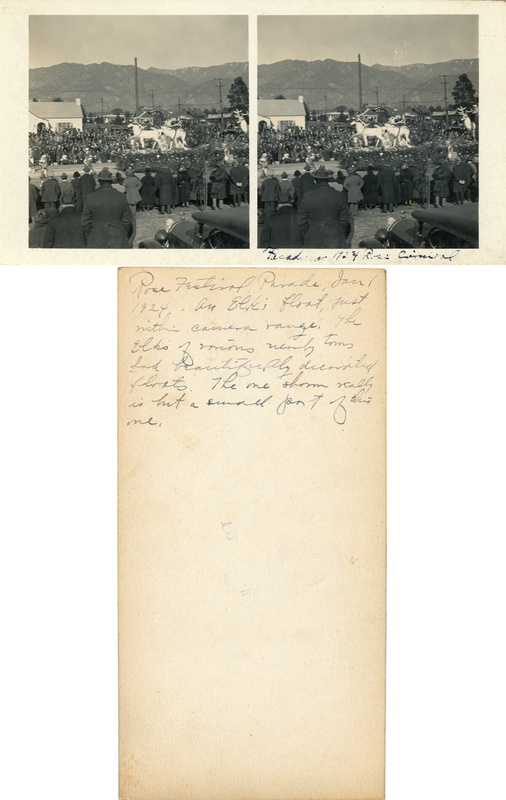 Pasadena 1924 Rose Carnival
Rose Festival Parade, Jan 1
1924. An Elk's float, just
within camera range. The
Elks of various nearby towns
had beautifully decorated
floats. The one shown really
is but a small part of this
one.